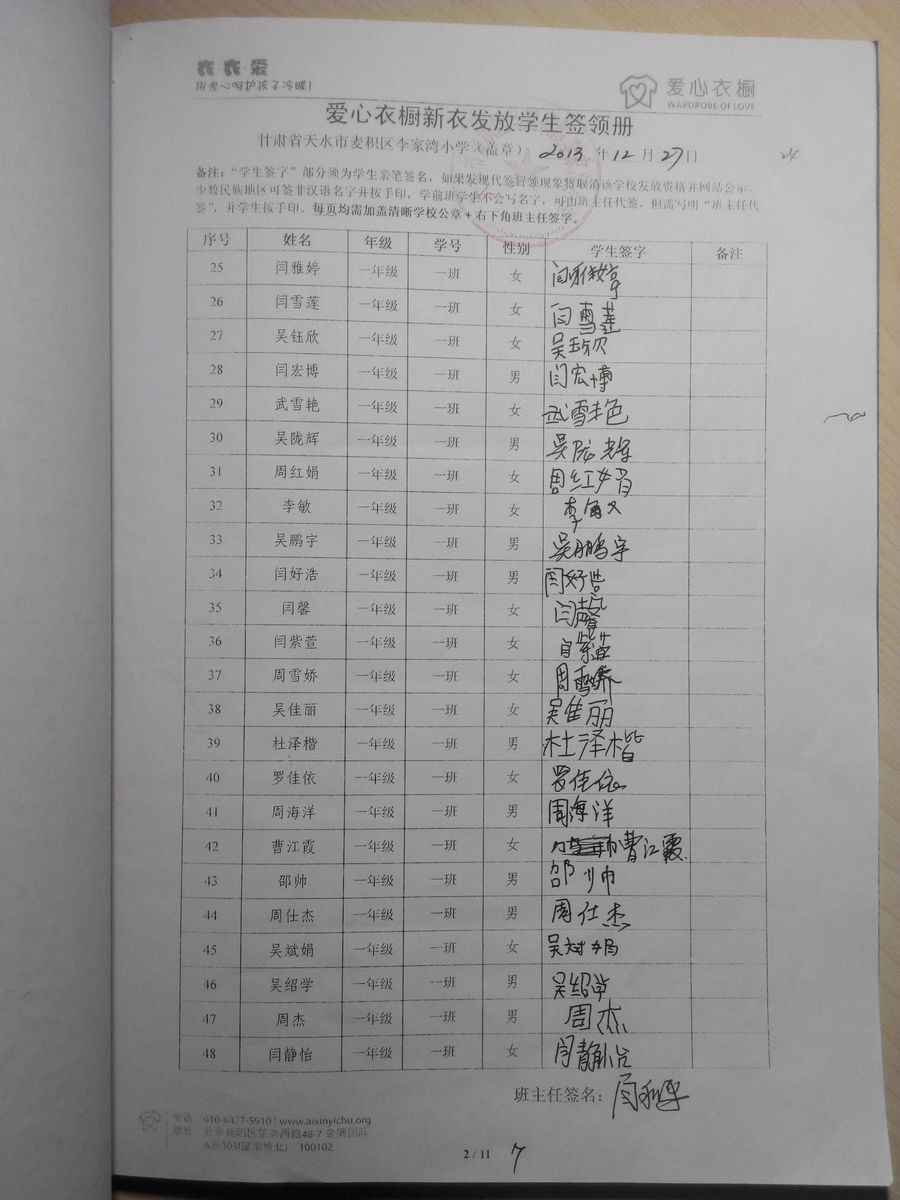 衣·衣·爱
用爱心呵护孩子冷暖！
爱心衣橱
WARDROBE OF LOVE
爱心衣橱新衣发放学生签领册
甘肃省天水市麦积区李家湾小学（盖章） 2013 年 12 月 27 日 24
备注：“学生签字”部分须为学生亲笔签名，如果发现代签冒领现象将取消该学校发放资格并网站公示。
少数民族地区可签非汉语名字并按手印，学前班学生不会写名字，可由班主任代签，但需写明“班主任代
签”，并学生按手印。每页均需加盖清晰学校公章+右下角班主任签字。
序号 姓名 年级 学号 性别 学生签字 备注
25 闫雅婷 一年级 一班 女 闫雅婷
26 闫雪莲 一年级 一班 女 闫雪莲
27 吴钰欣 一年级 一班 女 吴钰欣
28 闫宏博 一年级 一班 男 闫宏博
29 武雪艳 一年级 一班 女 武雪艳
30 吴陇辉 一年级 一班 男 吴陇辉
31 周红娟 一年级 一班 女 周红娟
32 李敏 一年级 一班 女 李敏
33 吴鹏宇 一年级 一班 男 吴鹏宇
34 闫好浩 一年级 一班 男 闫好浩
35 闫馨 一年级 一班 女 闫馨
36 闫紫萱 一年级 一班 女 闫紫萱
37 周雪娇 一年级 一班 女 周雪娇
38 吴佳丽 一年级 一班 女 吴佳丽
39 杜泽楷 一年级 一班 男 杜泽楷
40 罗佳依 一年级 一班 女 罗佳依
41 周海洋 一年级 一班 男 周海洋
42 曹江霞 一年级 一班 女 曹江霞
43 邵帅 一年级 一班 男 邵帅
44 周仕杰 一年级 一班 男 周仕杰
45 吴斌娟 一年级 一班 女 吴斌娟
46 吴绍学 一年级 一班 男 吴绍学
47 周杰 一年级 一班 男 周杰
48 闫静怡 一年级 一班 女 闫静怡
班主任签名：
电话 010-8477-5910 | www.aixinyichu.org
地址 北京朝阳区望京西路48-7 金隅国际
A座303(望京桥北) 100102
2 / 11 7